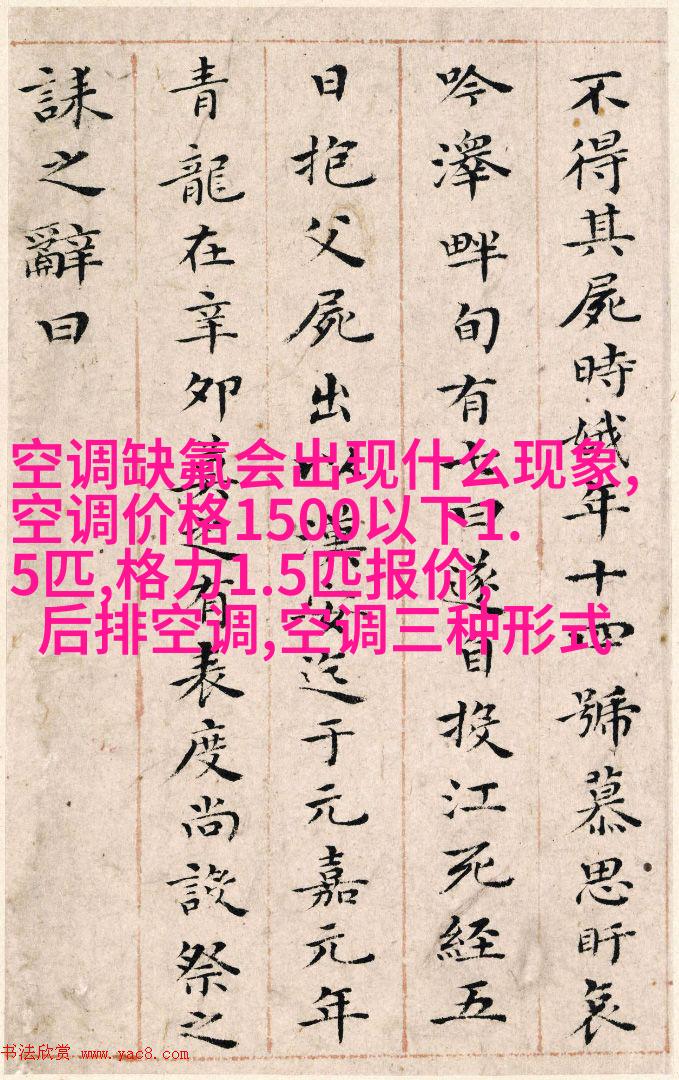 不得其屍時娥年十四號慕思盱哀
吟澤畔旬有七日遂自投江死經五
日抱父屍出以漢安迄于元嘉元年
青龍在辛卯莫之有表度尚設祭之
誄之辭曰
空调缺氟会出现什么现象,
空调价格1500以下1.
5匹,格力1.5匹报价,
后排空调,空调三种形式
书法欣赏 www.yac8.com